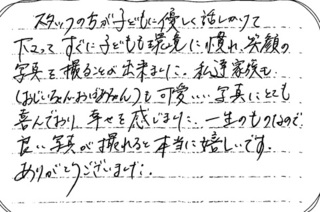 スタッフの方が子どもに優しく話しかけて
下さって すぐに子どもも環境に慣れ、笑顔の
写真を撮ることが出来ました。私達家族も
(おじいちゃんおばあちゃん)も可愛い写真にとても
喜んでおり、幸せを感じました。一生のものなので
良い写真が撮れると本当に嬉しいです。
ありがとうございました。